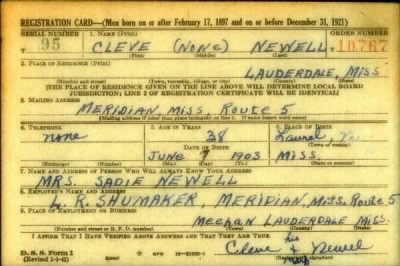 REGISTRATION CARD—(Men born on or after February 17, 1897 and on or before December 31, 1921)
SERIAL NUMBER 1. NAME (Print) ORDER NUMBER
T 95 CLEVE (NONE) NEWELL 10767
2. PLACE OF RESIDENCE (Print)
LAUDERDALE, MISS
(Number and street) (Town, township, village, or city) (County) (State)
[THE PLACE OF RESIDENCE GIVEN ON THE LINE ABOVE WILL DETERMINE LOCAL BOARD
JURISDICTION; LINE 2 OF REGISTRATION CERTIFICATE WILL BE IDENTICAL]
3. MAILING ADDRESS
MERIDIAN, MISS, ROUTE 5
[Mailing address if other than place indicated on line 2. If same insert word same]
4. TELEPHONE 5. AGE IN YEARS 6. PLACE OF BIRTH
none 38 Laurel,
DATE OF BIRTH (Town or county)
JUNE 7 1903 MISS.
7. NAME AND ADDRESS OF PERSON WHO WILL ALWAYS KNOW YOUR ADDRESS
MRS. SADIE NEWELL
8. EMPLOYER'S NAME AND ADDRESS
L. R. SHUMAKER, MERIDIAN, Miss. Route 5
9. PLACE OF EMPLOYMENT OR BUSINESS
Meehan LAUDERDALE MISS.
(Number and street or R. F. D. number) (Town) (County) (State)
I AFFIRM THAT I HAVE VERIFIED ABOVE ANSWERS AND THAT THEY ARE TRUE.
his
D. S. S. Form 1 Cleve x Newel
mark